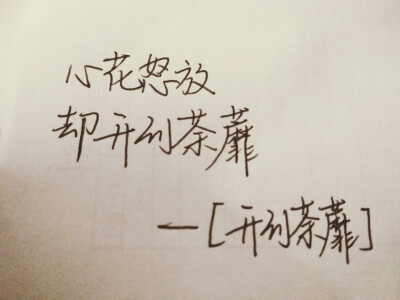 心花怒放
却开到荼蘼
—[开到荼蘼]